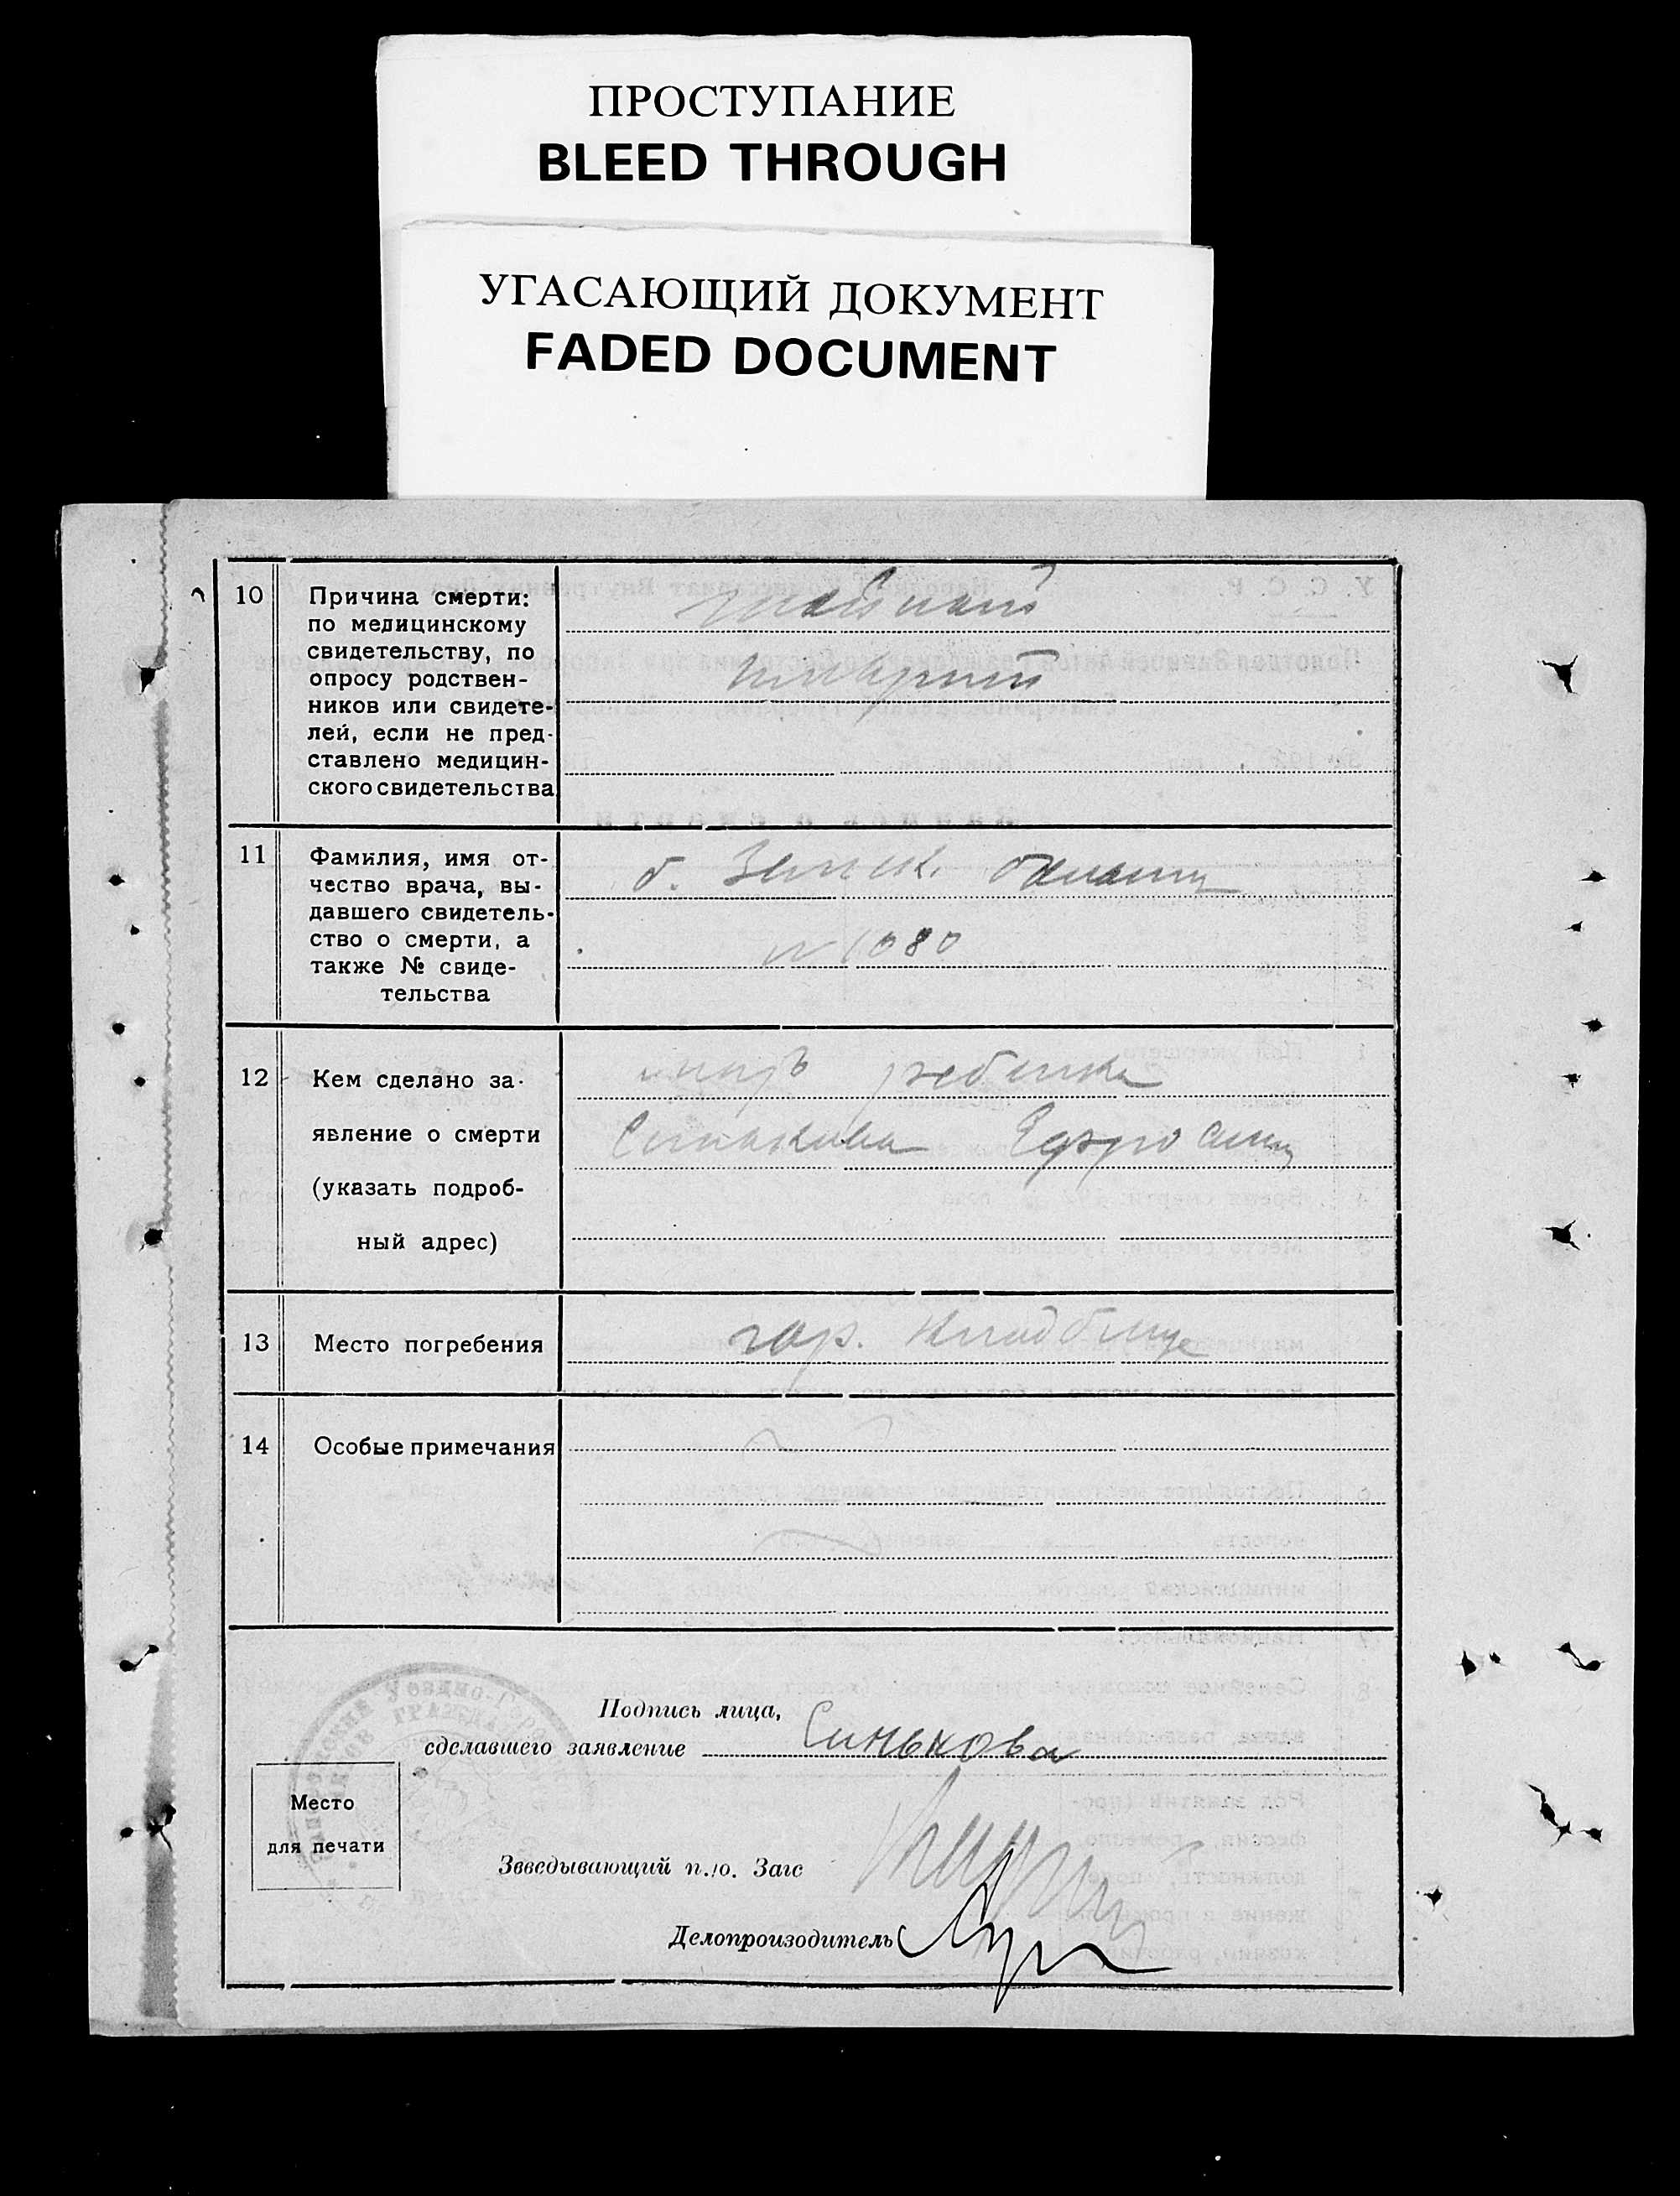 ПРОСТУПАНИЕ
BLEED THROUGH
УГАСАЮЩИЙ ДОКУМЕНТ
FADED DOCUMENT
10
Причина смерти:
по медицинскому
свидетельству, по
опросу родствен-
ников или свидете-
лей, если не пред-
ставлено медицин-
ского свидетельства
11
Фамилия, имя от-
чество врача, вы-
давшего свидетель-
ство о смерти, а
также № свиде-
тельства
б. Земск. больница
№ 1080
12
Кем сделано за-
явление о смерти
(указать подроб-
ный адрес)
ребенка
Синькова
13
Место погребения
гор. кладбище
14
Особые примечания
Подпись лица,
сделавшего заявление Синькова
Место
для печати
Звведывающий п.|о. Загс
Делопроизодитель